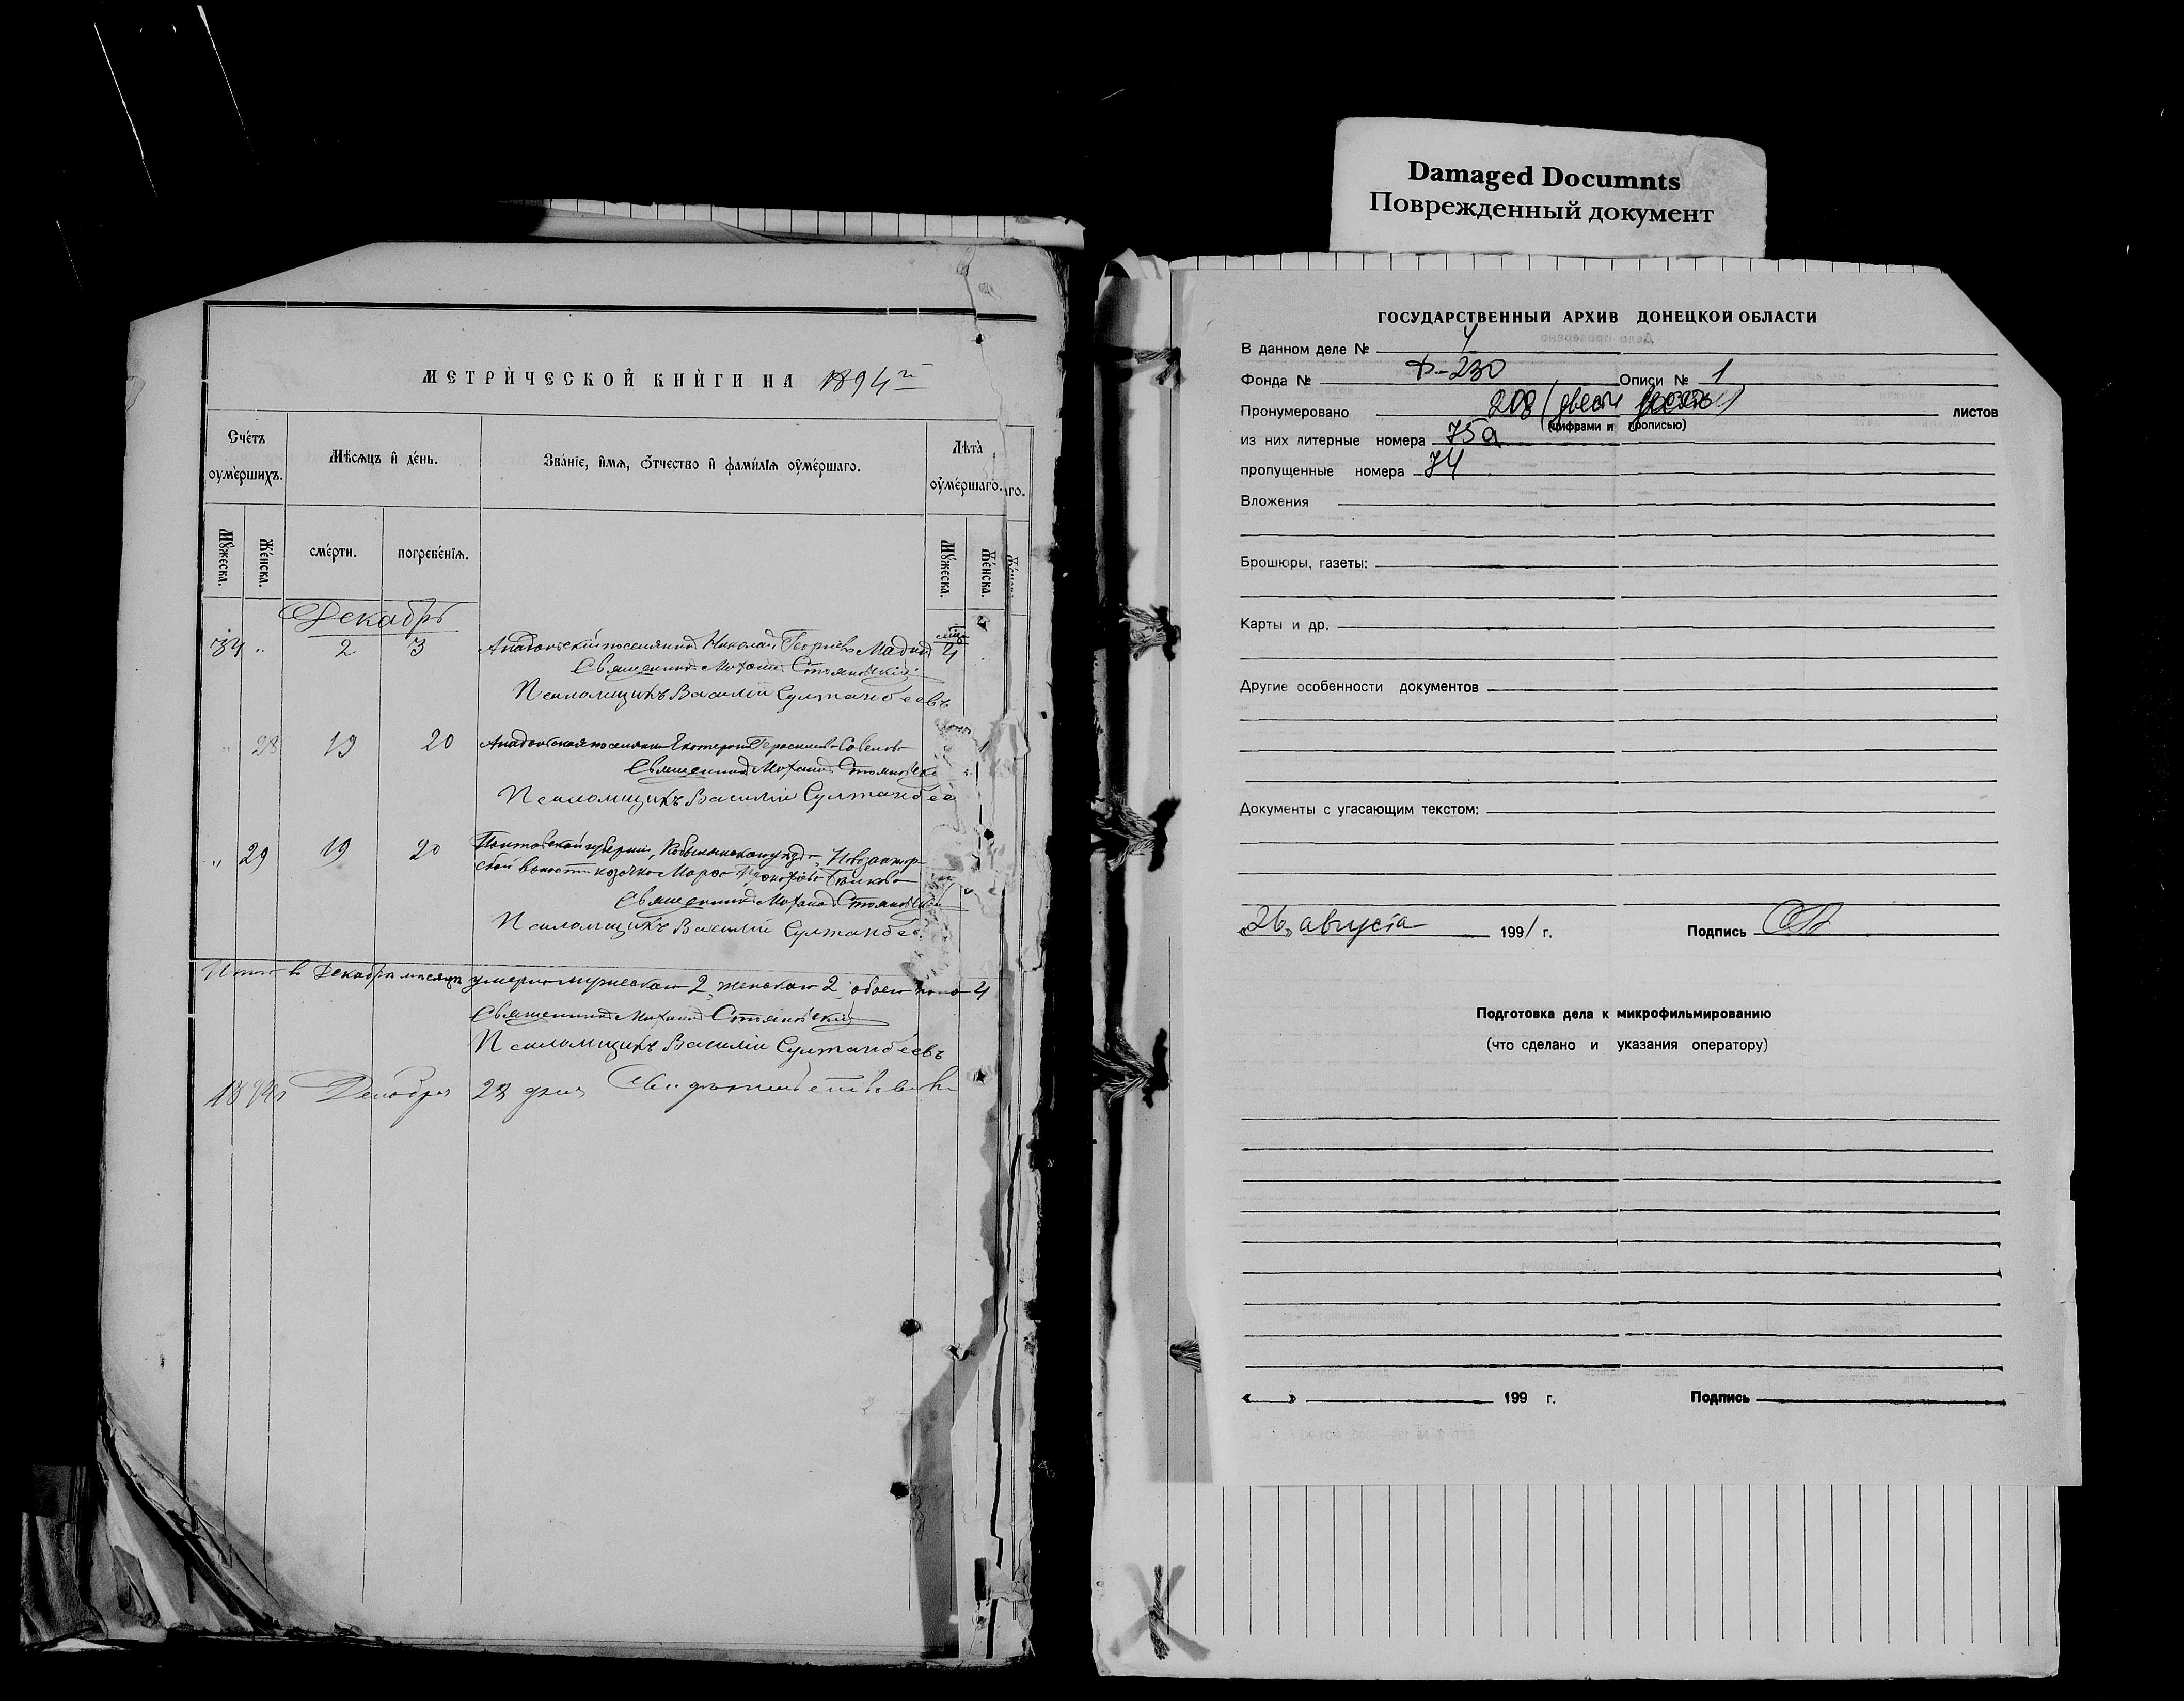 МЕТРИЧЕСКОЙ КНИГИ НА 1894 г
Сче́тъ оумершихъ.
Мѣсяцъ и день.
Званіе, имя, отчество и фамилія оумершаго.
Лѣта оумершаго.
аго.
Мужеска.
Женска.
смерти.
погребенія.
Мужеска.
Женска.
Декабрь
34 " 2 3 Анадольскій поселянинъ Николай Георгіевъ 4
Священникъ Михаилъ Стояновскій
Псаломщикъ Василій Султанбеевъ
" 28 19 20 Анадольская поселянка Екатерина Герасимова
Священникъ Михаилъ
Псаломщикъ Василій Султанбее
" 29 19 20 Полтавской губерніи, Кобелякскаго уѣзда,
волости козачка
Священникъ Михаилъ
Псаломщикъ Василій Султанбее
Итого въ Декабрѣ мѣсяцѣ умерло мужескаго 2, женскаго 2, обоего пола 4
Священникъ Михаилъ Стояновскій
Псаломщикъ Василій Султанбеевъ
1894 Декабря 28 дня
Damaged Documnts
Поврежденный документ
ГОСУДАРСТВЕННЫЙ АРХИВ ДОНЕЦКОЙ ОБЛАСТИ
В данном деле № 4
Фонда № Ф-230 Описи № 1
Пронумеровано 208 (двести восемь) листов
(цифрами и прописью)
из них литерные номера 75а
пропущенные номера 74
Вложения
Брошюры, газеты:
Карты и др.
Другие особенности документов
Документы с угасающим текстом:
«26» августа 1991 г. Подпись
Подготовка дела к микрофильмированию
(что сделано и указания оператору)
« » 199 г. Подпись